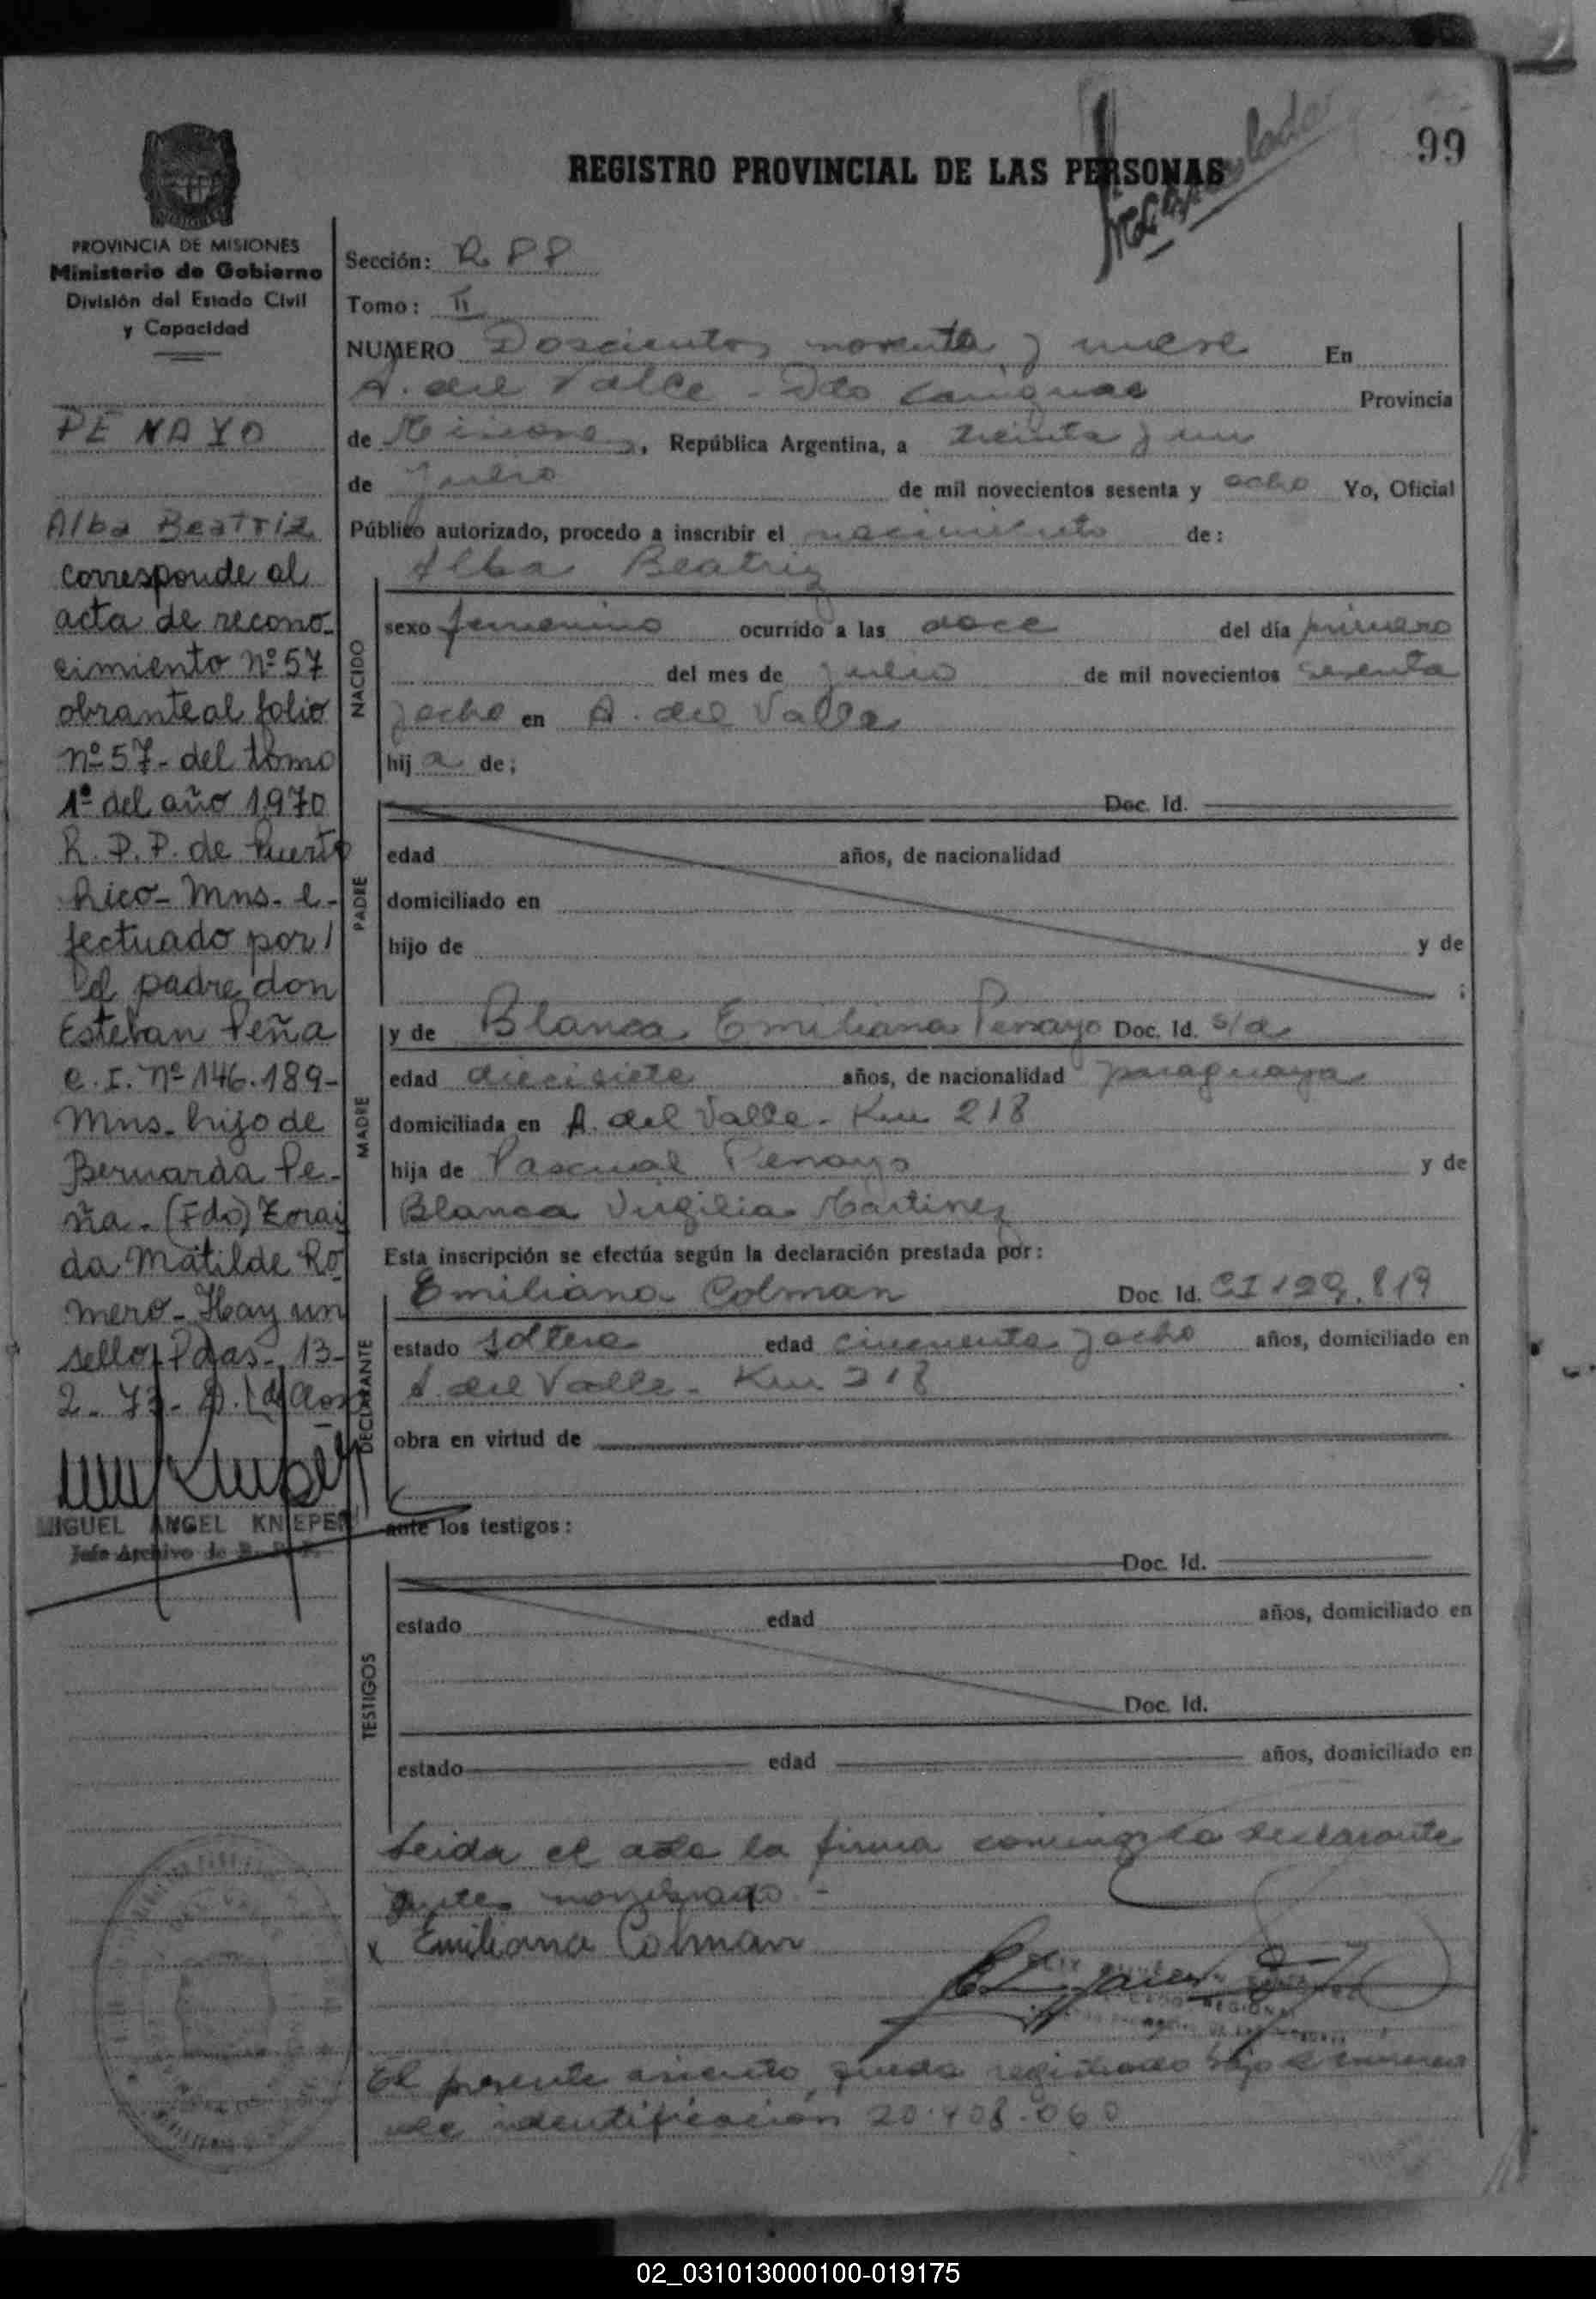 99
REGISTRO PROVINCIAL DE LAS PERSONAS
PROVINCIA DE MISIONES
Ministerio de Gobierno
División del Estado Civil
y Capacidad
PENAYO
Alba Beatriz
corresponde al
acta de recono-
cimiento nº 57
obrante al folio
nº 57 - del tomo
1º del año 1970
R. P. P. de Puerto
Rico - Mns. e-
fectuado por
el padre don
Esteban Peña
C. I. Nº 146.189-
Mns. hijo de
Bernarda Pe-
ña. (Fdo) Zorai
da Matilde Ro
mero - Hay un
sello. Pdas. 13-
2 - 73 -
MIGUEL ANGEL KNIEPER
Jefe Archivo de R. P. P.
Sección: R P P
Tomo: II
NUMERO Doscientos noventa y nueve En
A. del Valle - Dto Cainguas Provincia
de Misiones, República Argentina, a treinta y un
de Julio de mil novecientos sesenta y ocho Yo, Oficial
Público autorizado, procedo a inscribir el nacimiento de:
Alba Beatriz
NACIDO
sexo femenino ocurrido a las doce del día primero
del mes de julio de mil novecientos sesenta
y ocho en A. del Valle
hij a de;
PADRE
Doc. Id.
edad años, de nacionalidad
domiciliado en
hijo de y de
;
MADRE
y de Blanca Emiliana Penayo Doc. Id. s/d
edad diecisiete años, de nacionalidad paraguaya
domiciliada en A. del Valle - Km 218
hija de Pascual Penayo y de
Blanca Virgilia Martinez
Esta inscripción se efectúa según la declaración prestada por:
DECLARANTE
Emiliana Colman Doc. Id. CI 129.819
estado soltera edad cincuenta y ocho años, domiciliado en
A. del Valle - Km 218
obra en virtud de
ante los testigos:
TESTIGOS
Doc. Id.
estado edad años, domiciliado en
Doc. Id.
estado edad años, domiciliado en
Leida el acta la firma conmigo la declarante
antes nombrado -
x Emiliana Colman
REGIONAL
El presente asiento queda registrado bajo el numero
de identificación 20.408.060
02_031013000100-019175